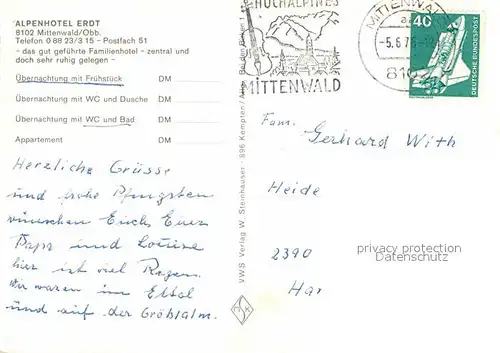 ALPENHOTEL ERDT
8102 Mittenwald/Obb.
Telefon 0 88 23/3 15 - Postfach 51
- das gut geführte Familienhotel - zentral und
doch sehr ruhig gelegen -
Übernachtung mit Frühstück DM
Übernachtung mit WC und Dusche DM
Übernachtung mit WC und Bad DM
Appartement DM
Herzliche Grüsse
und frohe Pfingsten
wünschen Euch Euer
Papa und Louise
hier ist viel Regen.
Wir waren im Ettal
und auf der Gröblalm.
VWS Verlag W. Steinhauser · 896 Kempten/
HOCHALPINES
MITTENWALD
MITTENWALD
-5.6.76
8102
40
DEUTSCHE BUNDESPOST
Fam.
Gerhard With
Heide
2390
Har
privacy protection
Datenschutz